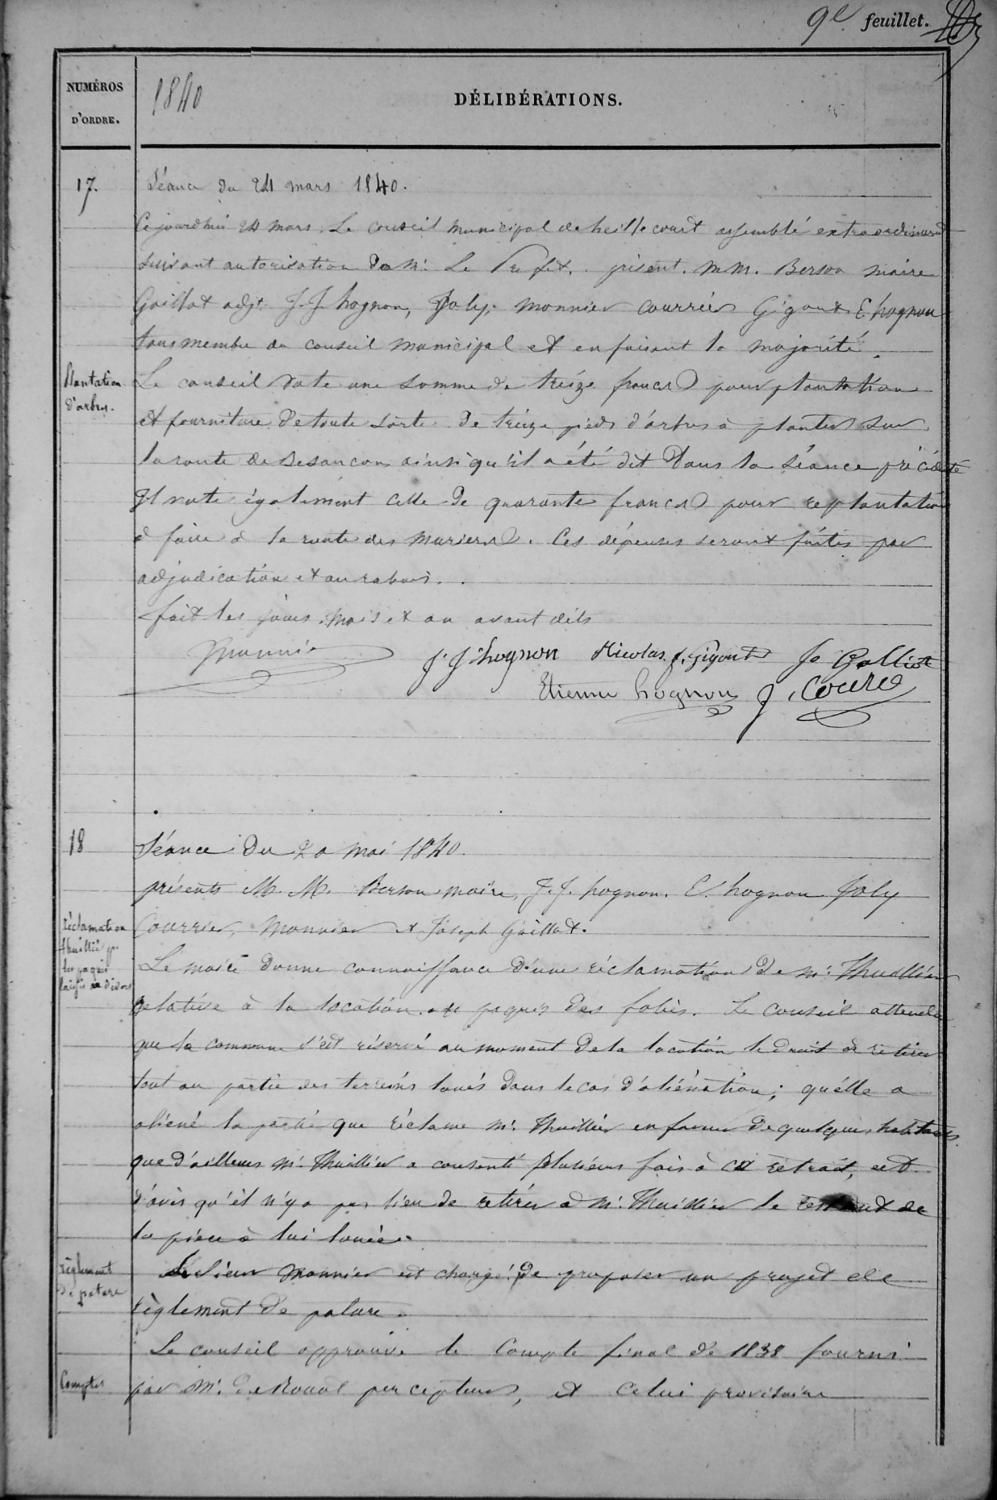 9e feuillet.
NUMÉROS
D'ORDRE.
1840
DÉLIBÉRATIONS.
17.
Séance du 24 mars 1840.
Cejourdhui 24 mars. Le conseil municipal de heillecourt assemblé extraordinairt
suivant autorisation de Mr. Le Préfet. présent. MM. Berson maire
Gaillot adjt J. J. hognon, Joly, Monnier Courrier Gigout E hognon
tous membre du conseil municipal et en faisant la majorité.
Plantation
d'arbres.
Le conseil vote une somme de treize francs pour plantation
et fourniture de toute sorte de treize pieds d'arbres à planter sur
la route de Besancon ainsi qu'il a été dit dans la séance précédte
Il vote également celle de quarante francs pour replantation
à faire à la route des mariers. Ces dépenses seront faites par
adjudication et au rabais.
fait les jours, mois et an avant dits
Monnier
J. J. hognon Nicolas f. gigout Jo Galliot
Etienne hognon J. Courié
18
Séance du 20 mai 1840.
présents M. M. Berson maire, J. J. hognon. E. hognon Joly
Courrier, Monnier et Joseph Gaillot.
réclamation
thuillié pr
les paquis
Le maire donne connaissance d'une réclamation de Mr. Thuillier
relative à la location de paquis des folies. Le conseil attendu
que la commune s'est réservé au moment de la location le droit de retirer
tout ou partie des terreins loués dans le cas d'aliénation; qu'elle a
aliéné la partie que réclame Mr. Thuillier en faveur de quelques habitants
que d'ailleurs Mr. Thuillier a consenti plusieurs fois à ce retrait, est
d'avis qu'il n'y a pas lieu de retirer à Mr. Thuillier le de
la pièce à lui louée.
règlement
de pature
Le Sieur Monnier est chargé de proposer un projet de
règlement de pature.
Le conseil approuve le Compte final de 1838 fourni
Comptes
par Mr. De Roual percepteur, et celui provisoire